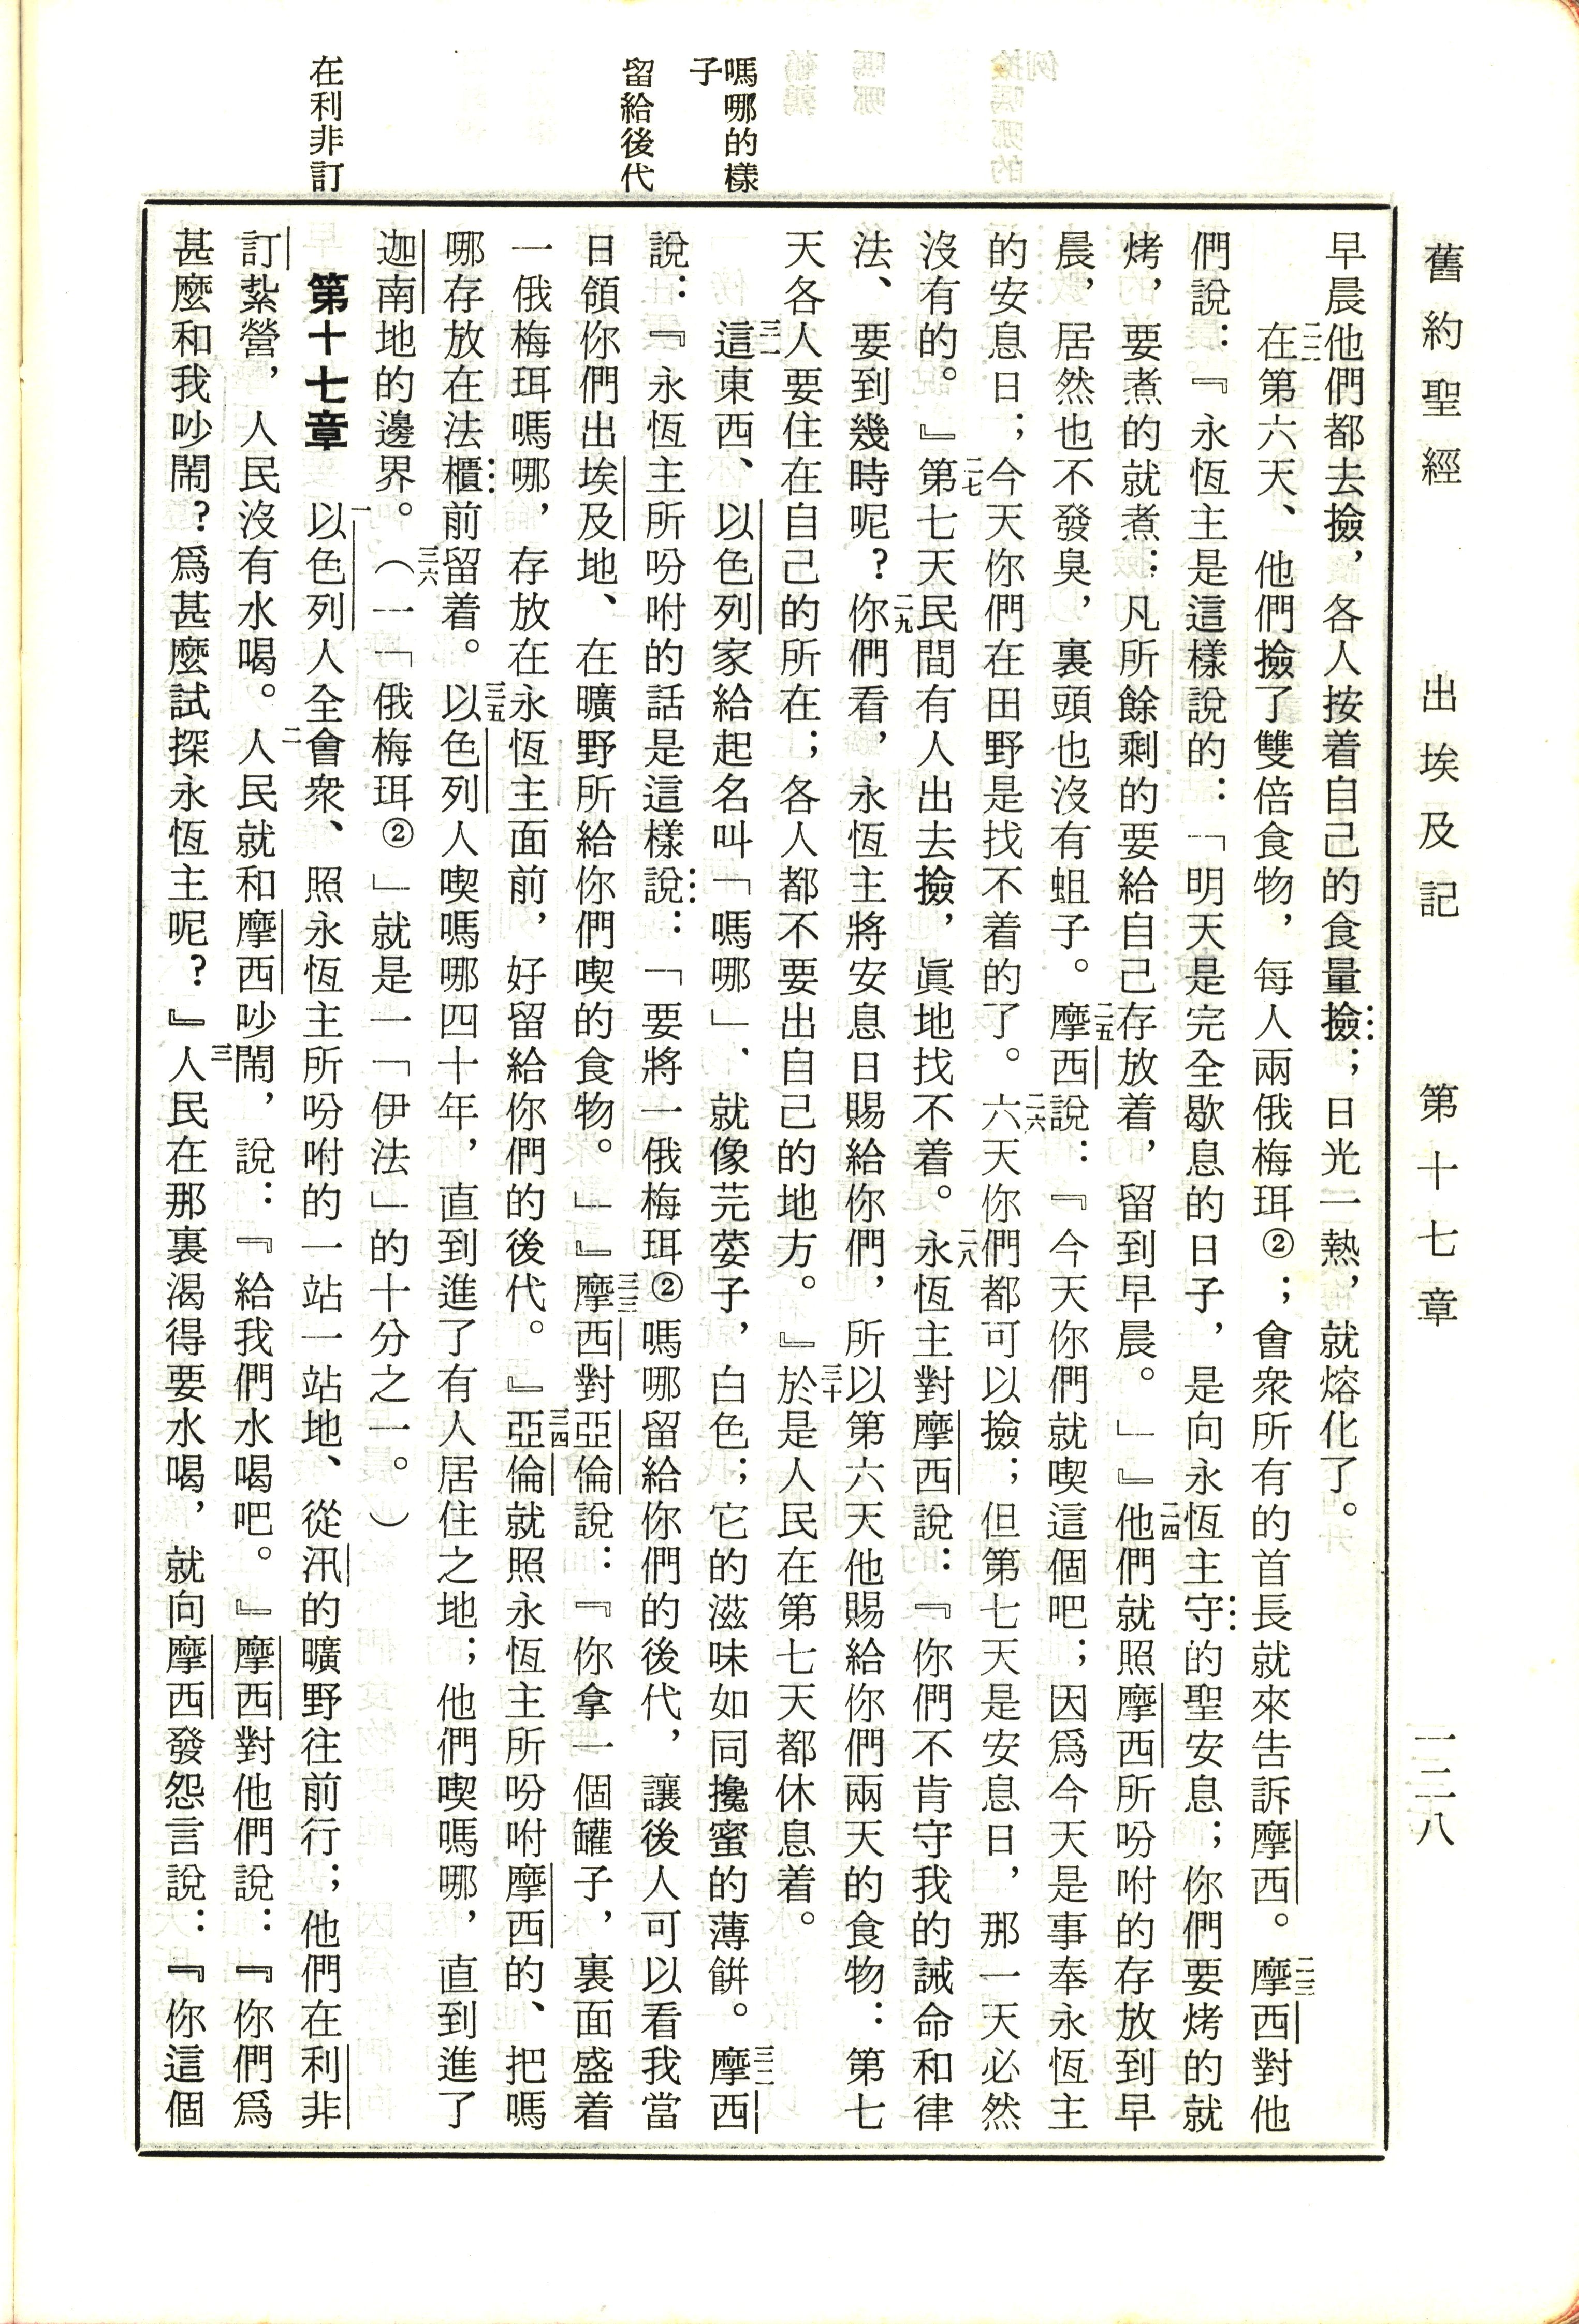 舊約聖經　出埃及記　第十七章　一二八
早晨他們都去撿，各人按着自己的食量撿；日光一熱，就熔化了。
二二在第六天、他們撿了雙倍食物，每人兩俄梅珥②；會衆所有的首長就來告訴摩西。二三摩西對他
們說：『永恆主是這樣說的：「明天是完全歇息的日子，是向永恆主守的聖安息；你們要烤的就
烤，要煮的就煮；凡所餘剩的要給自己存放着，留到早晨。」』二四他們就照摩西所吩咐的存放到早
晨，居然也不發臭，裏頭也沒有蛆子。二五摩西說：『今天你們就喫這個吧；因爲今天是事奉永恆主
的安息日；今天你們在田野是找不着的了。二六六天你們都可以撿；但第七天是安息日，那一天必然
沒有的。』二七第七天民間有人出去撿，眞地找不着。二八永恆主對摩西說：『你們不肯守我的誡命和律
法、要到幾時呢？二九你們看，永恆主將安息日賜給你們，所以第六天他賜給你們兩天的食物：第七
天各人要住在自己的所在；各人都不要出自己的地方。』三十於是人民在第七天都休息着。
嗎哪的樣子
三一這東西、以色列家給起名叫「嗎哪」、就像芫荽子，白色；它的滋味如同攙蜜的薄餅。三二摩西
說：『永恆主所吩咐的話是這樣說：「要將一俄梅珥②嗎哪留給你們的後代，讓後人可以看我當
留給後代
日領你們出埃及地、在曠野所給你們喫的食物。」』三三摩西對亞倫說：『你拿一個罐子，裏面盛着
一俄梅珥嗎哪，存放在永恆主面前，好留給你們的後代。』三四亞倫就照永恆主所吩咐摩西的、把嗎
哪存放在法櫃前留着。三五以色列人喫嗎哪四十年，直到進了有人居住之地；他們喫嗎哪，直到進了
迦南地的邊界。三六（一「俄梅珥②」就是一「伊法」的十分之一。）
在利非訂
第十七章　一以色列人全會衆、照永恆主所吩咐的一站一站地、從汛的曠野往前行；他們在利非
訂紮營，人民沒有水喝。二人民就和摩西吵鬧，說：『給我們水喝吧。』摩西對他們說：『你們爲
甚麼和我吵鬧？爲甚麼試探永恆主呢？』三人民在那裏渴得要水喝，就向摩西發怨言說：『你這個